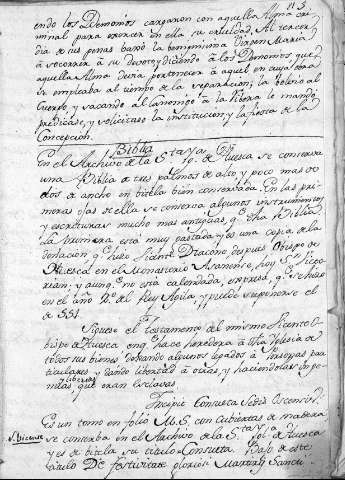 113
endo los Demonios cargaron con aquella Alma cri-
minal para exercer en ella su crueldad. Al tercer
dia de sus penas baxó la benignisima Virgen Maria
à socorrer à su devoto, y diciendo à los Demonios que
aquella Alma devia pertenecer à aquel en cuya obra
se empleaba al tiempo de la separacion; la bolvió al
Cuerpo, y sacando al canonigo à la Ribera le mandó
predicase, y solicitase la institucion, y la fiesta de la
Concepcion.
Biblia
En el Archivo de la Sta Yga de Huesca se conserva
una Biblia de tres palmos de alto, y poco mas de
dos de ancho en bitela bien conservada. En las pri-
meras ojas de ella se conserva algunos instrumentos,
y escrituras mucho mas antiguas, que dha Biblia.
La primera está muy gastada, y es una copia de la
donacion, que hizo Vicente Diacono despues Obispo de
Huesca en el Monasterio Asanense, hoy Sn Victo-
rian; y aunqe no está calendada, expresa, que se hizo
en el año 2o del Rey Agila, y puede suponerse el
de 551.
Siguese el testamento del mismo Vicente O-
bispo de Huesca en qe hace heredera à dha Iglesia de
todos sus bienes dexando algunos legados à personas par-
ticulares, y dando libertad à otras, y haciendolas inge-
nuas, y liberas que eran esclavas.
Incipit Consueta Sedis Oscensis.
Es un tomo en folio M.S. con cubiertas de madera
se conserva en el Archivo de la Sta Yga de Huesca
S. Vicente
y es de bitela su titulo Consueta. Baxo de este
titulo De festivitate gloriosi Martyris Sancti